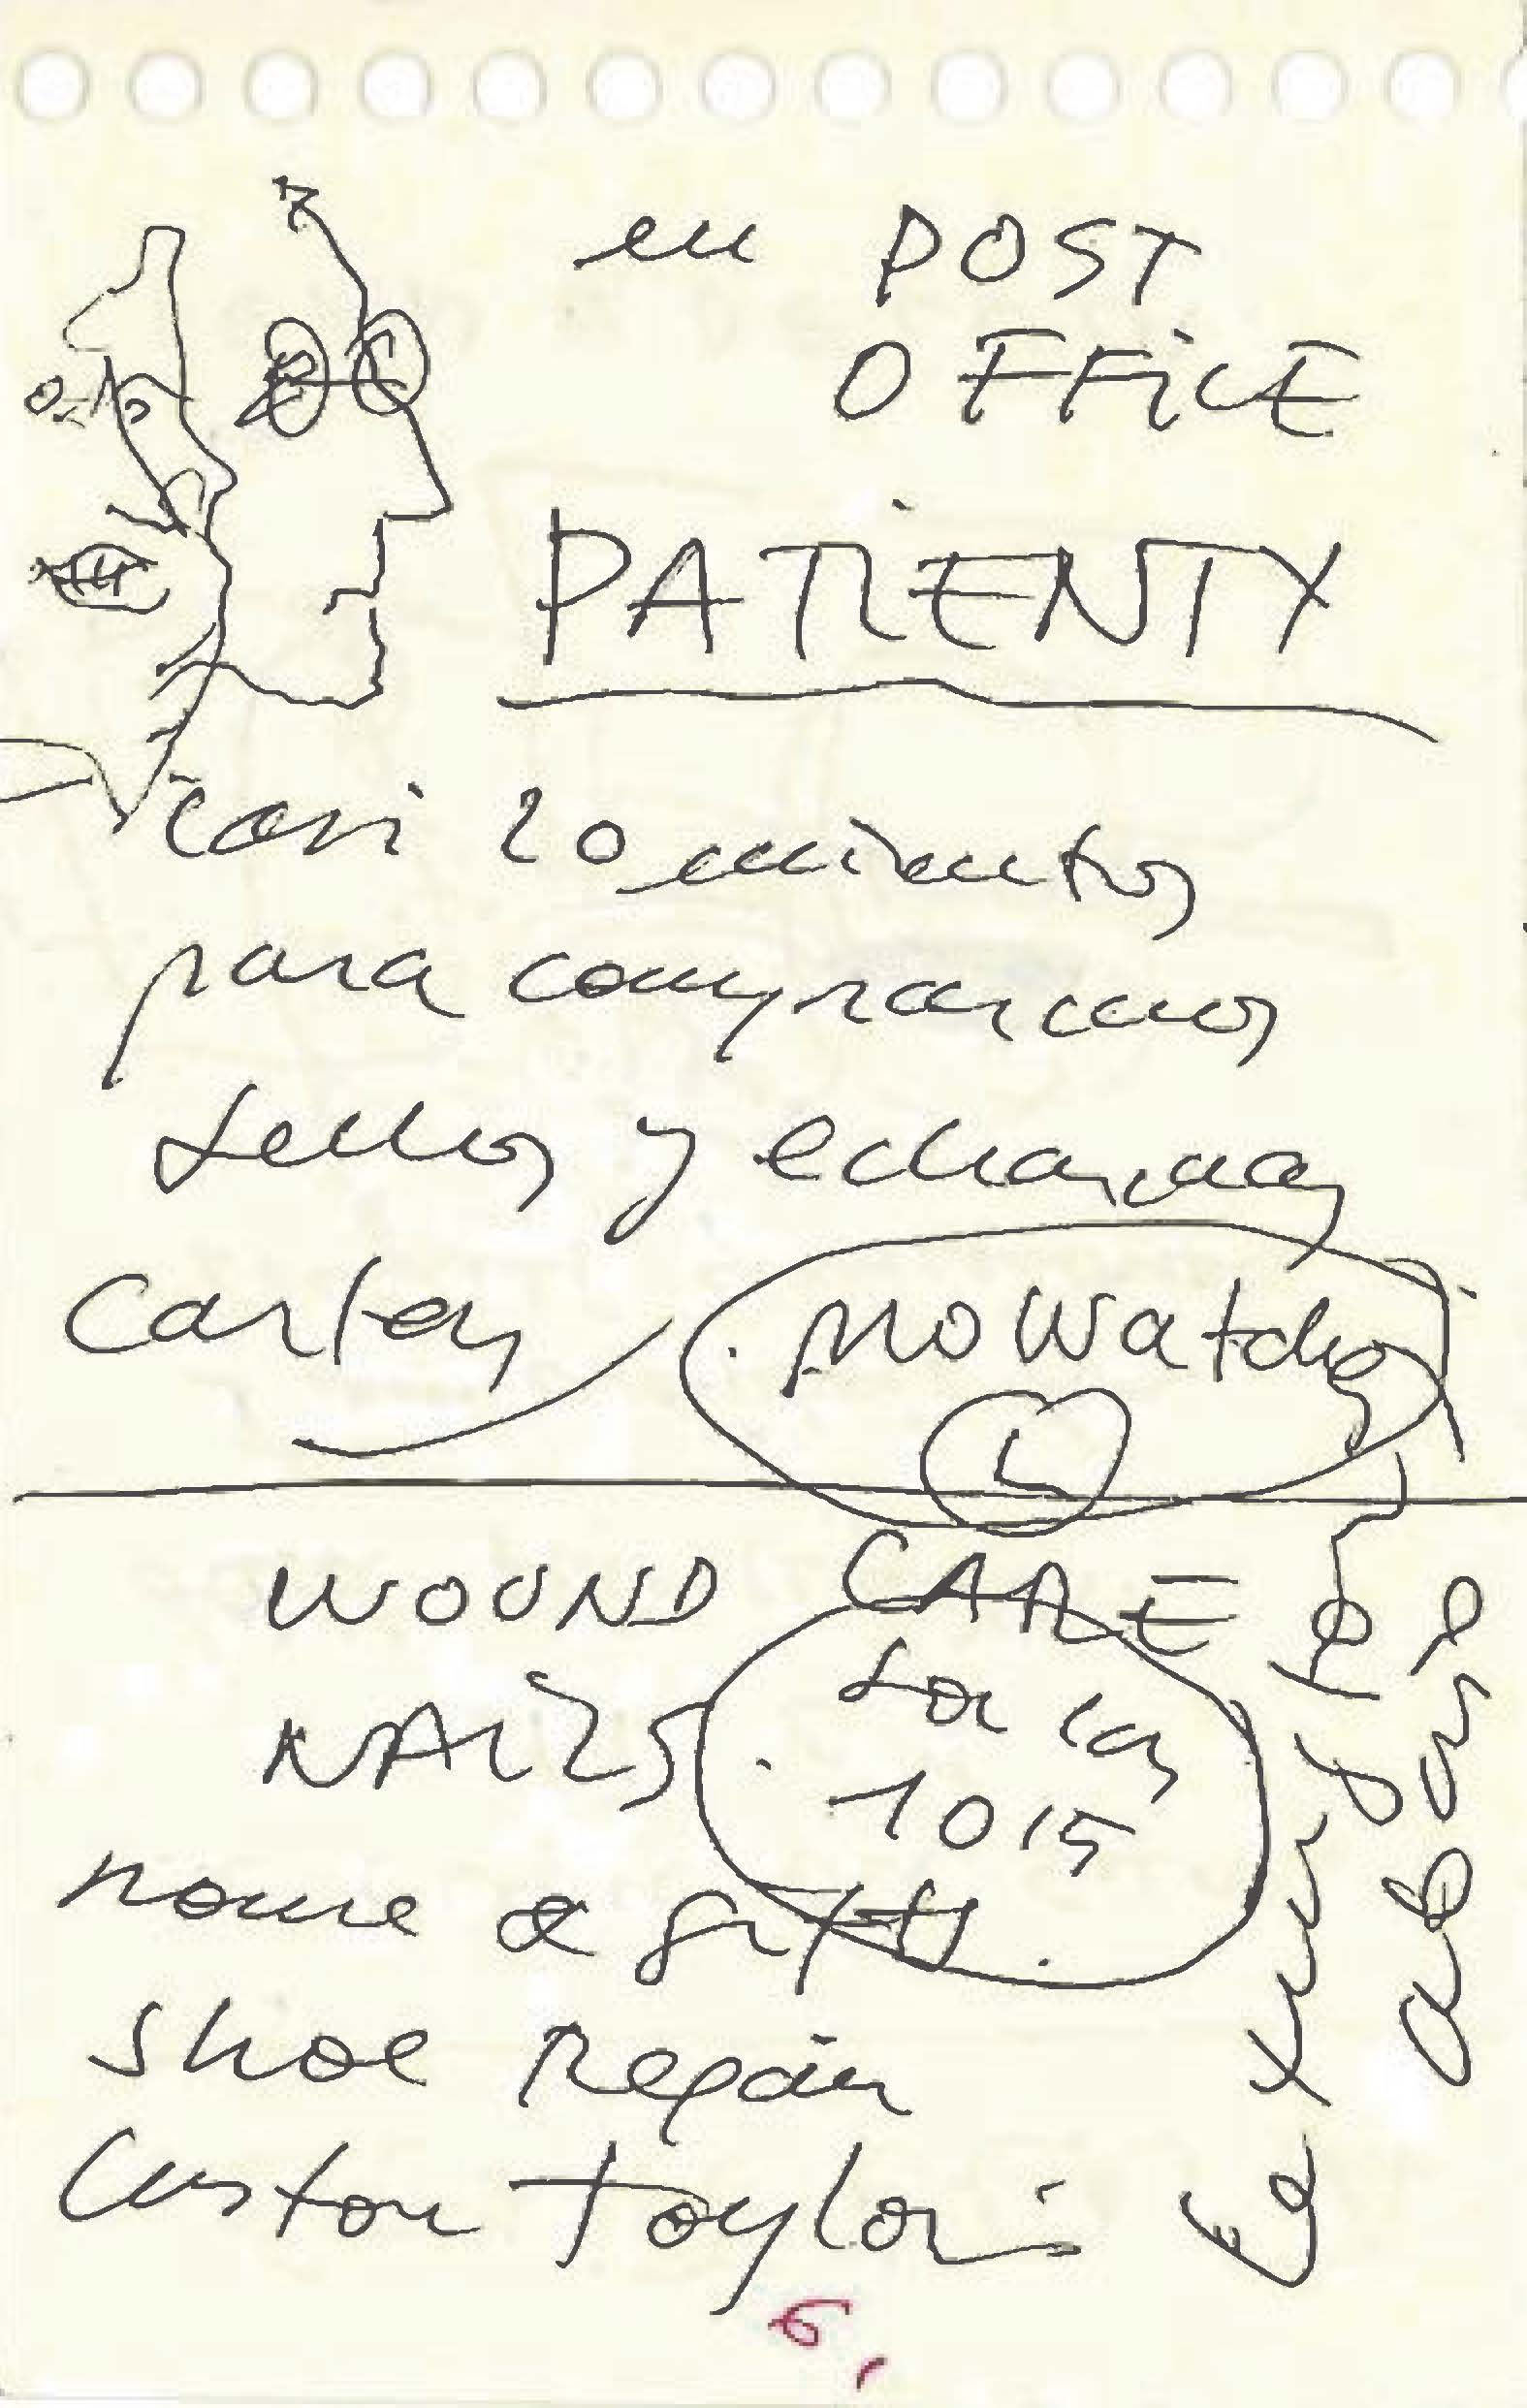 en POST
OFFICE
PATIENTX
casi 20 minutos
para comprarnos
sellos y echarnos
cartas
no watches
WOUND CARE
NAILS
son las
1015
home & gifts
shoe Repair
Custom Taylori
6,